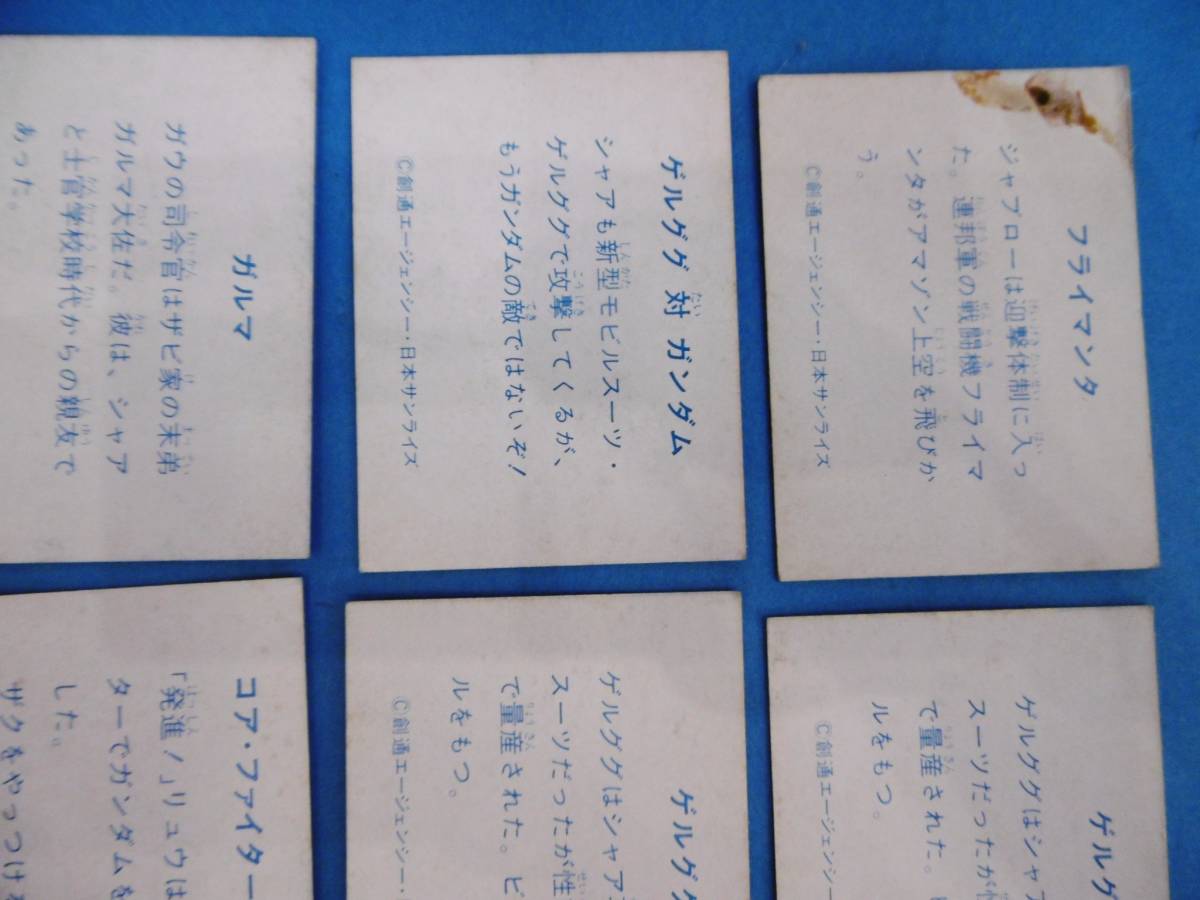 ガルマ
ガウの司令官はザビ家の末弟
ガルマ大佐だ。彼は、シャア
と士官学校時代からの親友で
あった。
ゲルググ 対 ガンダム
シャアも新型モビルスーツ・
ゲルググで攻撃してくるが、
もうガンダムの敵ではないぞ!
©創通エージェンシー・日本サンライズ
フライマンタ
ジャブローは迎撃体制に入っ
た。連邦軍の戦闘機フライマ
ンタがアマゾン上空を飛びか
う。
©創通エージェンシー・日本サンライズ
コア・ファイター
「発進!」リュウは
ターでガンダムを
した。
ザクをやっつける
ゲルググ
ゲルググはシャア
スーツだったが性
で量産された。ビ
ルをもつ。
©創通エージェンシー・
ゲルグ
ゲルググはシャア
スーツだったが性
で量産された。
ルをもつ。
©創通エージェンシー